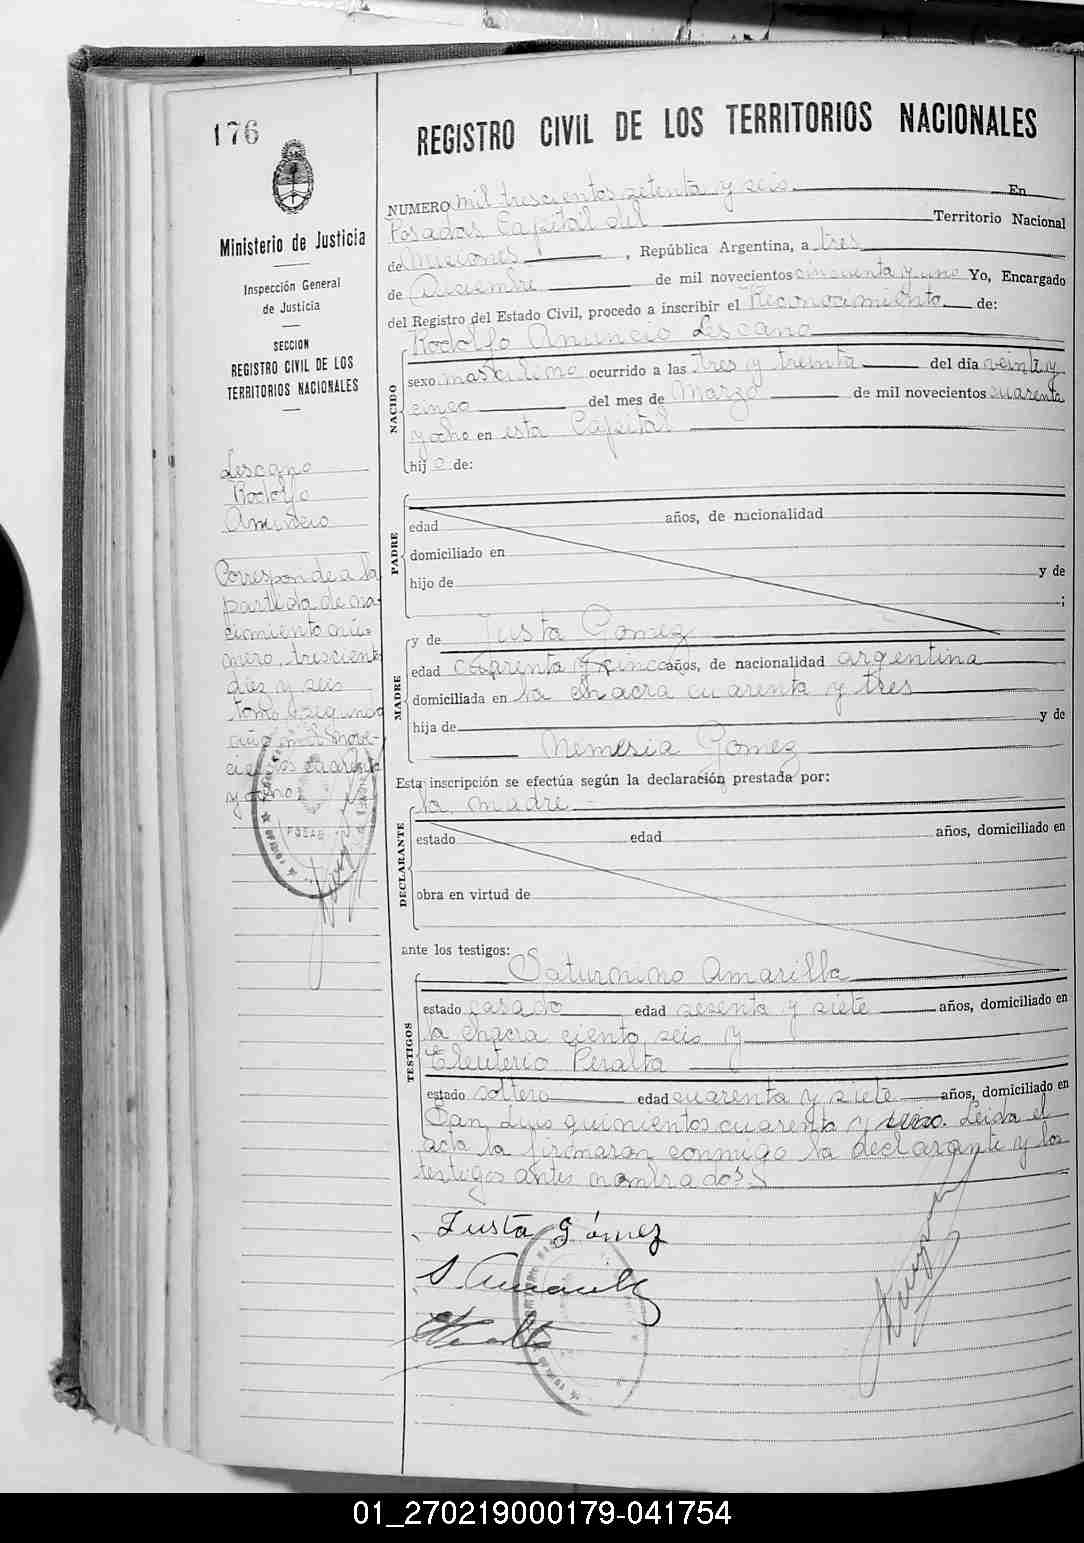 176
Ministerio de Justicia
Inspección General
de Justicia
SECCION
REGISTRO CIVIL DE LOS
TERRITORIOS NACIONALES
Lescano
Rodolfo
Anuncio
Corresponde a la
partida de na-
cimiento nú-
mero, tresciento
diez y seis
tomo segundo
año mil nove-
cientos cuarenta
y ocho
REGISTRO CIVIL DE LOS TERRITORIOS NACIONALES
NUMERO mil trescientos setenta y seis En
Posadas Capital del Territorio Nacional
de Misiones, República Argentina, a tres
de Diciembre de mil novecientos cincuenta y uno Yo, Encargado
del Registro del Estado Civil, procedo a inscribir el Reconocimiento de:
Rodolfo Anuncio Lescano
NACIDO
sexo masculino ocurrido a las tres y treinta del día veinte y
cinco del mes de Marzo de mil novecientos cuarenta
y ocho en esta Capital
hijo de:
PADRE
edad años, de nacionalidad
domiciliado en
hijo de y de
;
y de Justa Gomez
MADRE
edad cuarenta y cinco años, de nacionalidad argentina
domiciliada en la chacra cuarenta y tres
hija de y de
Nemesia Gomez
Esta inscripción se efectúa según la declaración prestada por:
la madre
DECLARANTE
estado edad años, domiciliado en
obra en virtud de
ante los testigos:
Saturnino Amarilla
TESTIGOS
estado casado edad sesenta y siete años, domiciliado en
la chacra ciento seis y
Eleuterio Peralta
estado soltero edad cuarenta y siete años, domiciliado en
San Luis quinientos cuarenta y cinco. Leida el
acta la firmaron conmigo la declarante y los
testigos antes nombrados
Justa Gómez
S. Amarilla
01_270219000179-041754